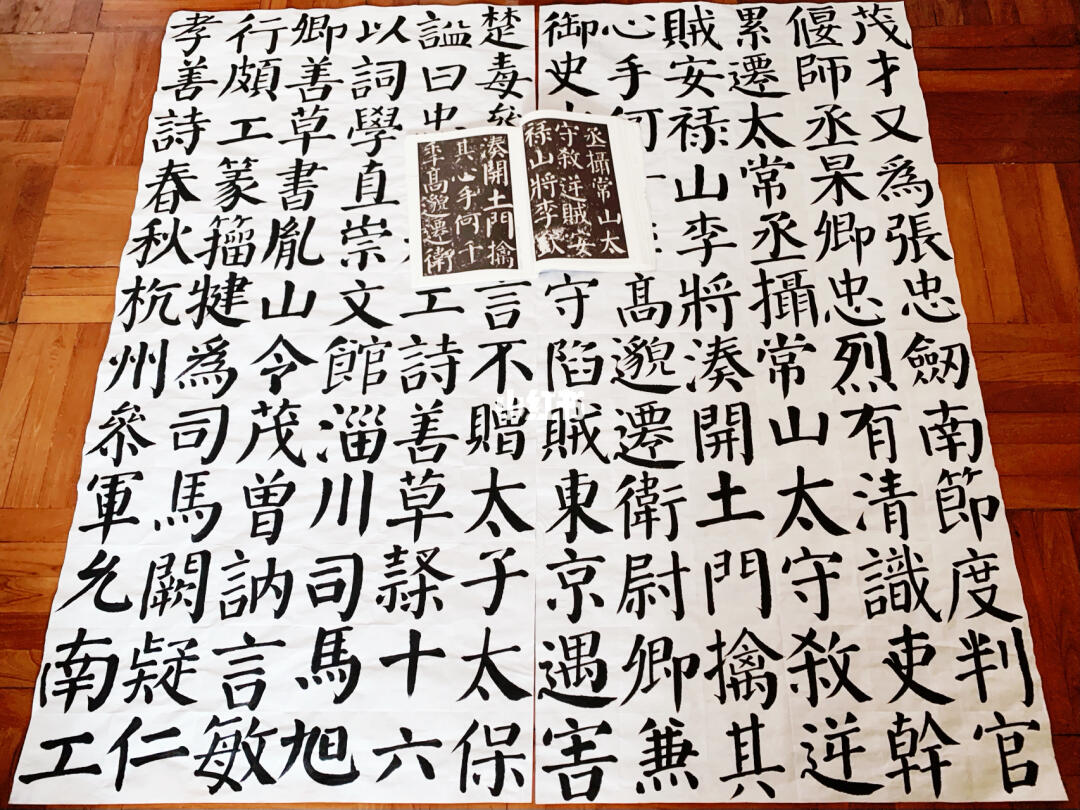 茂才又為張忠劔南節度判官
偃師丞杲卿忠烈有清識吏幹
累遷太常丞攝常山太守殺逆
賊安禄山李將湊開土門擒其
心手何髙邈遷衛尉卿兼
御史守陷賊東京遇害
楚毒言不贈太子太保
謚曰忠工詩善草隸十六
以詞學直崇文館淄川司馬旭
卿善草書胤山令茂曾訥言敏
行頗工篆籀犍為司馬闕疑仁
孝善詩春秋杭州叅軍允南工
丞攝常山太
守殺逆賊安
禄山將李欽
湊開土門擒
其心手何千
年髙邈遷衛
小红书